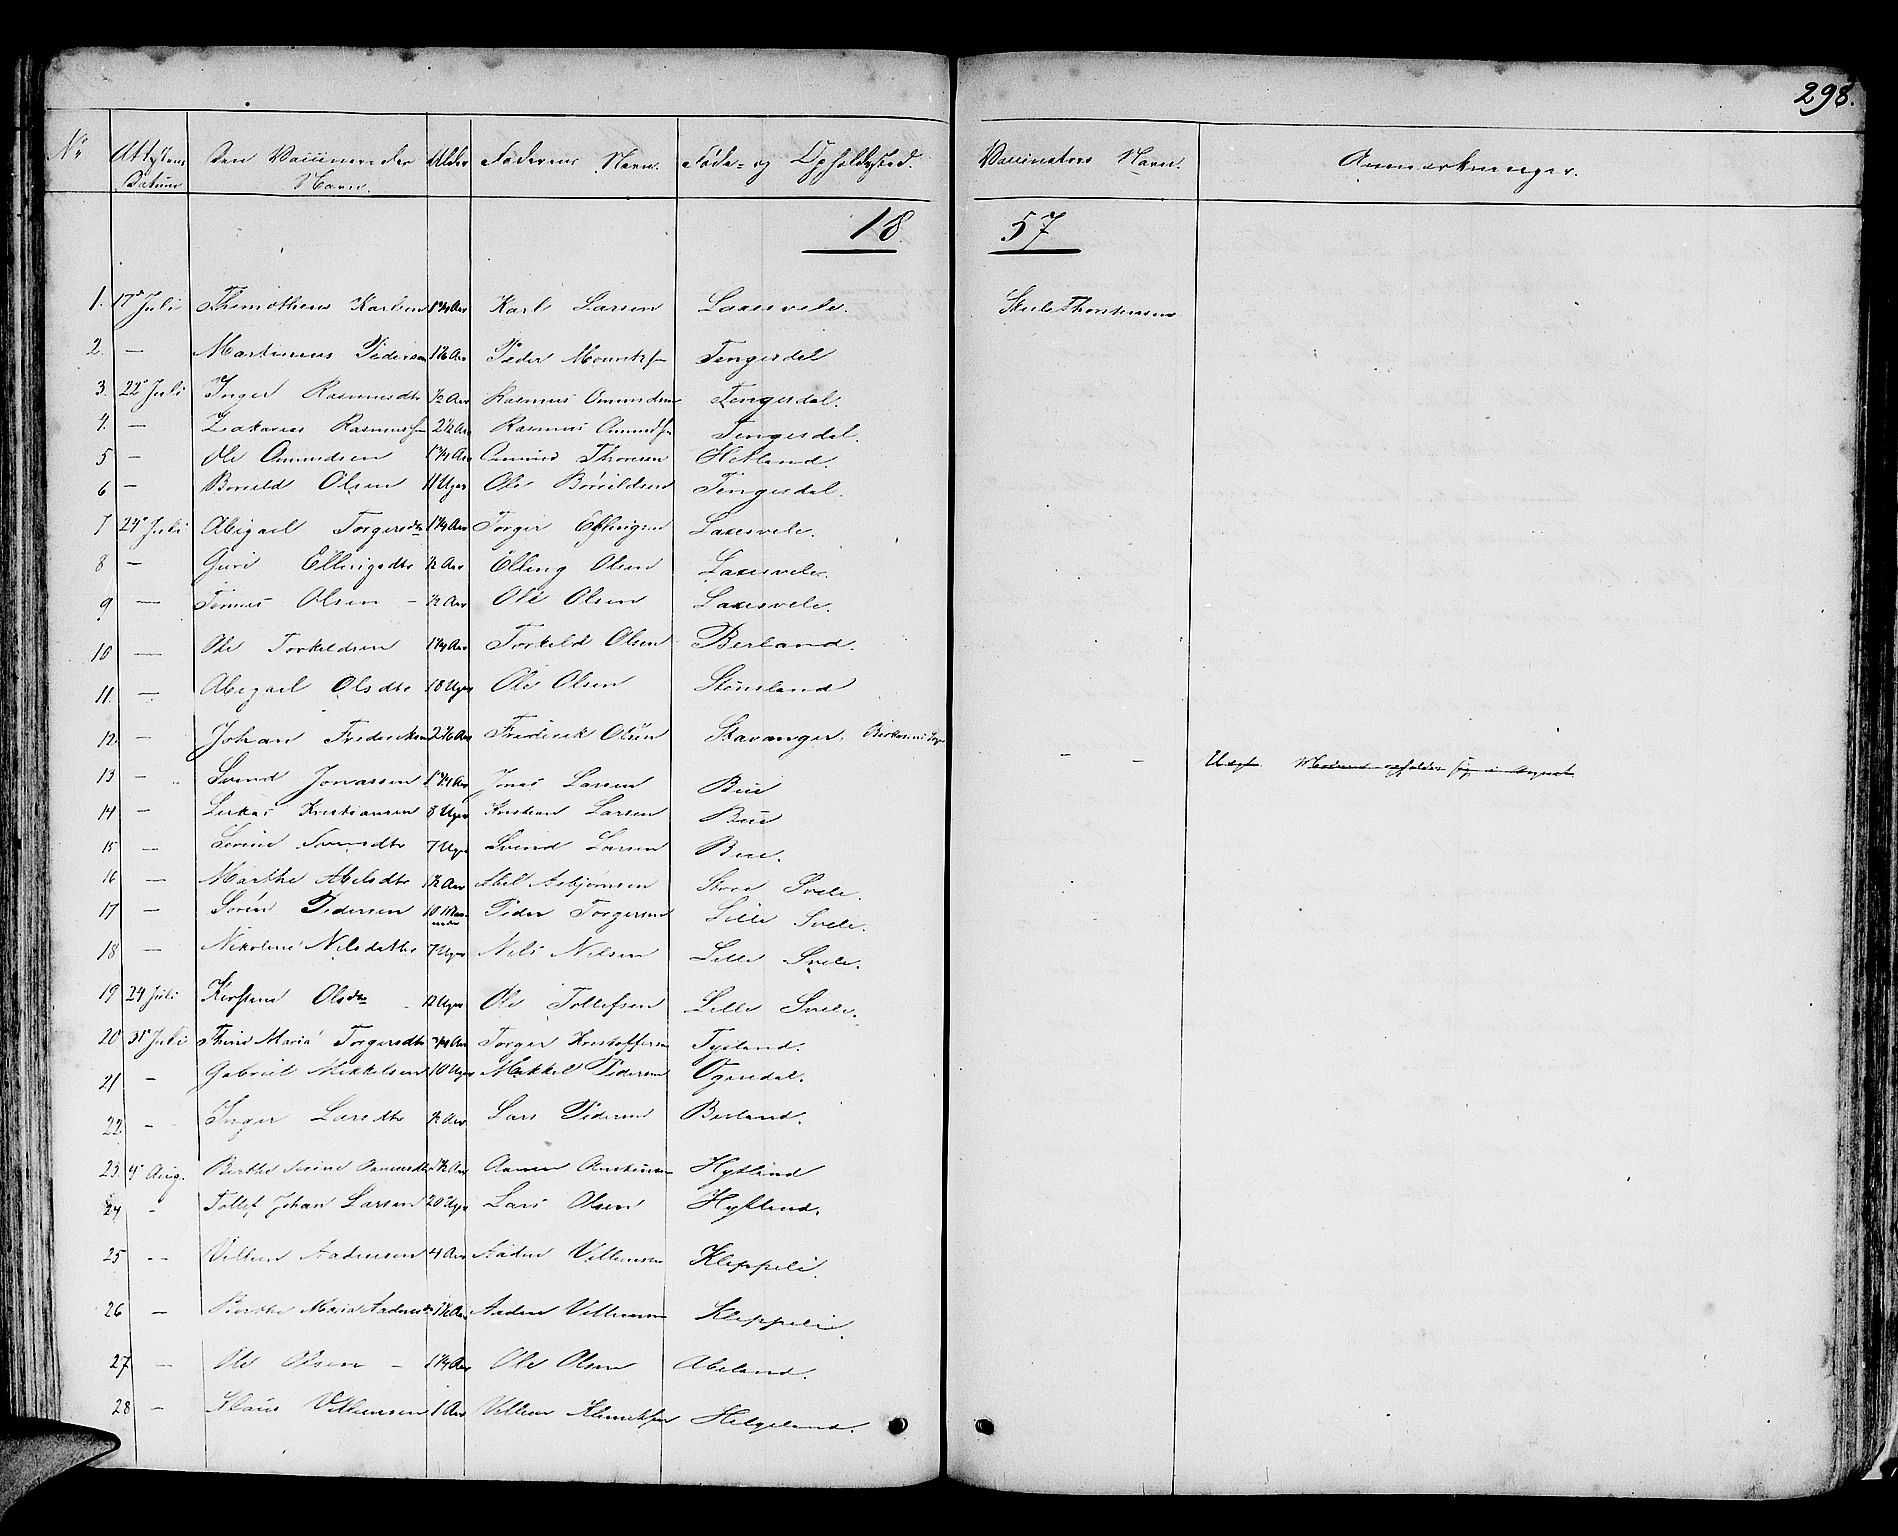 298.
No Attestens Datum Den Vaccineredes Navn. Alder Faderens Navn. Føde- og Opholdssted. Vaccinators Navn. Anmærkninger.
18 57
1. 17de Juli Thimotheus Karlsen 1 3/4 Aar Karl Larsen Laxesvele.
2. — Martinus Pedersen Aar Peder Tengesdal
3. 22de Juli Inger Rasmusdtr 1/2 Aar Rasmus Omundsen Tengesdal.
4. — Zakarias Rasmussen 2 1/2 Aar Rasmus Omundsen Tengesdal.
5 — Ole Omundsen 1 3/4 Aar Omund Thorsen Hetland.
6 — Boreld Olsen 11 Uger Ole Tengesdal.
7 24de Juli Abigael Torgersdtr 1 1/4 Aar Torger Ellingsen Laxesvele.
8 — Guri Ellingsdtr 1/2 Aar Elling Olsen Laxesvele.
9 — Tønnes Olsen – 1/2 Aar Ole Olsen Laxesvele.
10 — Ole Torkeldsen 1 1/4 Aar Torkeld Olsen Berland.
11. — Abigael Olsdtr 18 Uger Ole Olsen Stensland
12. — Johan Fredriksen Aar Fredrik Olsen Stavanger. — — Uægt. Moderen opholder sig i
13 — Svend Jonassen Aar Jonas Larsen Bue
14 — Lukas Kristiansen 8 Uger Kristian Larsen Bue
15 — Serine Svendsdtr 7 Uger Svend Larsen Bue.
16 — Marthe Abelsdtr 1/2 Aar Abel Asbjørnsen Store Svele.
17 — Søren Pedersen 10 Maaneder Peder Torgersen Lille Svele.
18 — Nikoline Nilsdatter 7 Uger Nils Nilsen Lille Svele.
19 24 Juli Kirstine Olsdtr 12 Uger Ole Tollefsen Lille Svele.
20 31te Juli Maria Torgersdtr 3/4 Aar Torger Kristoffersen Tysland.
21 — Gabriel Mikkelsen 10 Uger Mikkel Pedersen Ognedal.
22. — Inger Larsdtr 1/2 Aar Lars Pedersen Berland.
23. 4de Aug. Berthe Serine 1/2 Aar Hytland
24 - Tollef Johan Larsen 20 Uger Lars Olsen Hytland.
25 — Villum Aadnesen 4 Aar Aadne Villumsen Kleppeli.
26 — Berthe Maria Aadnesdtr 1 1/2 Aar Aadne Villumsen Kleppeli.
27 — Ole Olsen – 1 1/4 Aar Ole Olsen Aveland.
28 — Klaus Villumsen 1 Aar Villum Helgeland.